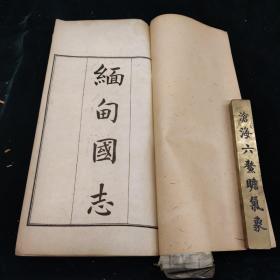 緬甸國志
滄海六鰲瞻氣象